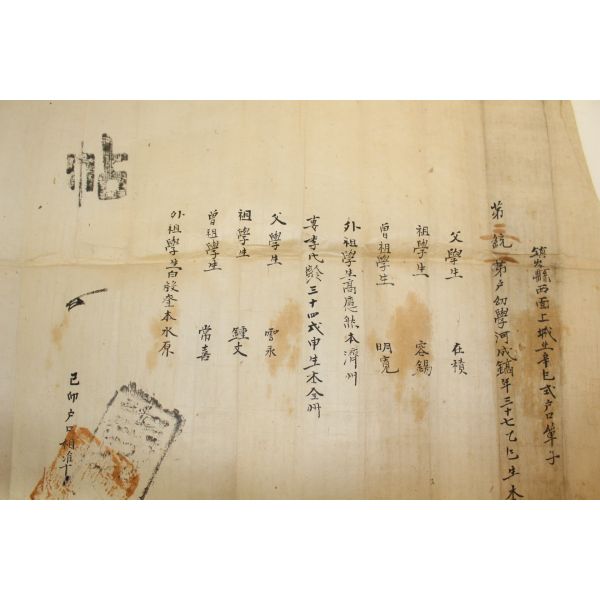 縣西面上城 辛巳式戶口單子
第二統 第 戶幼學河成鎬年三十七乙巳生本
父學生 在積
祖學生 容錫
曾祖學生 明寬
外祖學生高應 本濟州
妻李氏齡三十四戊申生本全州
父學生 雲永
祖學生 鍾文
曾祖學生 常喜
外祖學生白殷奎本水原
帖
己卯戶口相準